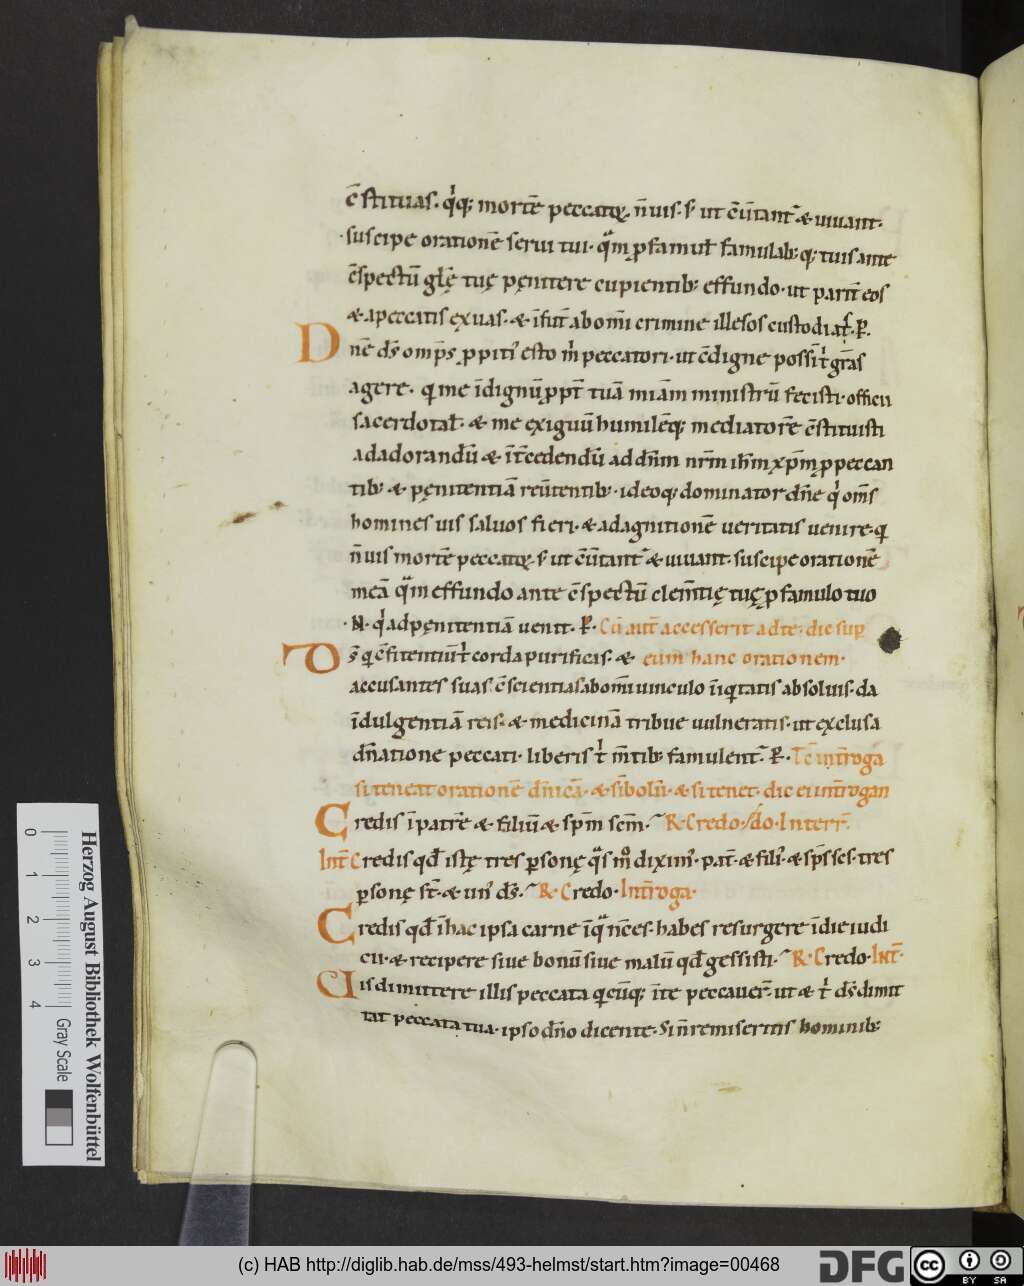 c̄stituas. q̇q; mortē peccatoꝝ. n̄ uis. s; ut c̄ūtant᷑ & uiuant.
suscipe orationē serui tui. quā ꝓ famul̄ famulab; q; tuis ante
c̄spectū gl̄ę tuę pęnitere cupientib; effundo. ut parit̄ eos
& a peccatis exuas. & ī fut̄ ab om̄i crimine illesos custodiat. P.
Dn̄e d̄s omp̄s ꝓpiti᷒ esto m̄ peccatori. ut c̄digne possī t̄ gr̄as
agere. qui me īdignū ꝓpt̄ tuā miam̄ ministrū fecisti. officii
sacerdotal̄. & me exiguū humilēq; mediatorē c̄stituisti
ad adorandū & īt̄cedendū ad dn̄m nr̄m ih̄m xp̄m ꝓ peccan
tib; & pęnitentiā reūtentib; ideoq; dominator dn̄e qui om̄s
homines uis saluos fieri. & ad agnitionē ueritatis uenire. qui
n̄ uis mortē peccatoꝝ. s; ut c̄ūtant᷑ & uiuant. suscipe orationē
meā quā effundo ante c̄spectū clem̄tię tuę ꝓ famulo tuo
.N. qui ad pęnitentiā uenit. P. Cū aut̄ accesserit ad te. dic sup
D̄s qui c̄fitentiū t̄ corda purificas. & eum hanc orationem.
accusantes suas c̄scientias ab om̄i uinculo īiqtatis absoluis. da
īdulgentiā reis. & medicinā tribue uulneratis. ut exclusa
dn̄atione peccati. liberis t̄ m̄tib; famulent᷑. P. Tc̄ int̄roga
si teneat orationē dn̄icā. & sībolū. & si tenet. dic ei int̄rogan
Credis ī patrē & filiū & sp̄m sc̄m. R. Credo. Sd̄o. Interr.
Int̄ Credis qd̄ istę tres p̱sonę quas m̊ dixim᷒. pat̄. & fili᷒. & sp̄s sc̄s. tres
p̱sonę st̄. & un᷒ d̄s. R. Credo. Int̄roga.
Credis qd̄ ī hac ipsa carne ī qua nc̄ es. habes resurgere ī die iudi
cii. & recipere siue bonū siue malū qd̄ gessisti. R. Credo. Int̄.
Uis dimittere illis peccata quicūq; ī te peccauer̄. ut & t̄ d̄s dimit
tat peccata tua. ipso dn̄o dicente. Si n̄ remiseritis hominib;
0
1
2
3
4
Gray Scale
Herzog August Bibliothek Wolfenbüttel
(c) HAB http://diglib.hab.de/mss/493-helmst/start.htm?image=00468
DFG
cc
BY SA